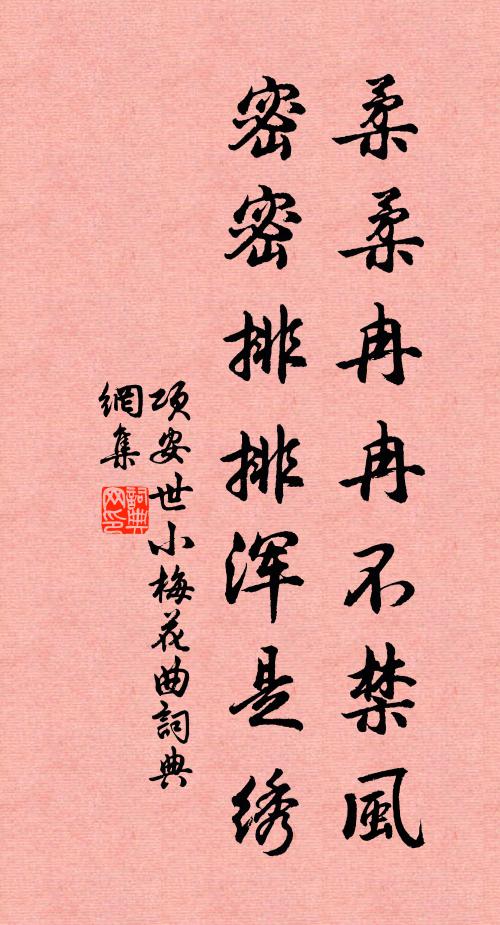 柔柔冉冉不禁風
密密排排浑是绣
项安世小梅花曲詞典
網集
詞典
网印